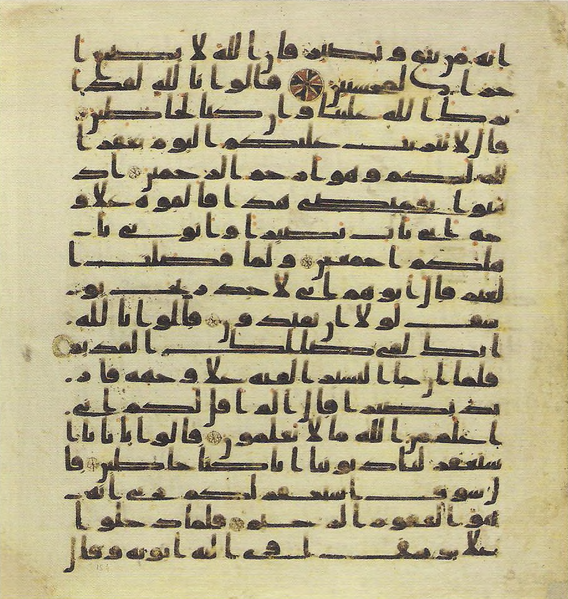 انه من يتق و يصبر فان الله لا يضيع ا
جر المحسنين قالوا تالله لقد ا
ثرك الله علينا وان كنا لخاطين
قال لا تثريب عليكم اليوم يغفر ا
لله لكم وهو ارحم الرحمين اذ
هبوا بقميصي هذا فالقوه علا و
جه ابي يات بصيرا واتوني با
هلكم اجمعين ولما فصلت ا
لعير قال ابوهم اني لاجد ريح يو
سف لولا ان تفندون قالوا تالله
انك لفي ضللك القديم
فلما ان جا البشير القيه علا وجهه فار
تد بصيرا قال الم اقل لكم اني
اعلم من الله ما لا تعلمون قالوا يابانا ا
ستغفر لنا ذنوبنا انا كنا خاطين قا
ل سوف استغفر لكم ربي انه
هو الغفور الرحيم فلما دخلوا
علا يوسف اوي اليه ابويه وقال